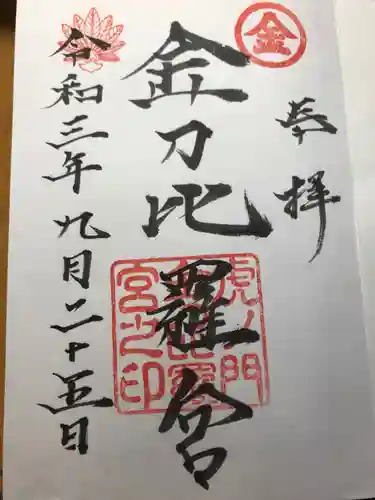 奉拝
金
金刀比羅宮
虎ノ門
金刀比羅
宮之印
令和三年九月二十五日